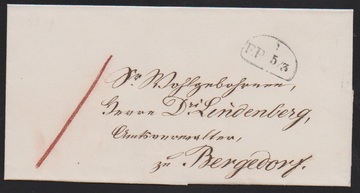 1
FP 5/3
Sr Wohlgebohren,
Herrn Dr. Lindenberg,
Amtsverwalter,
zu Bergedorf.